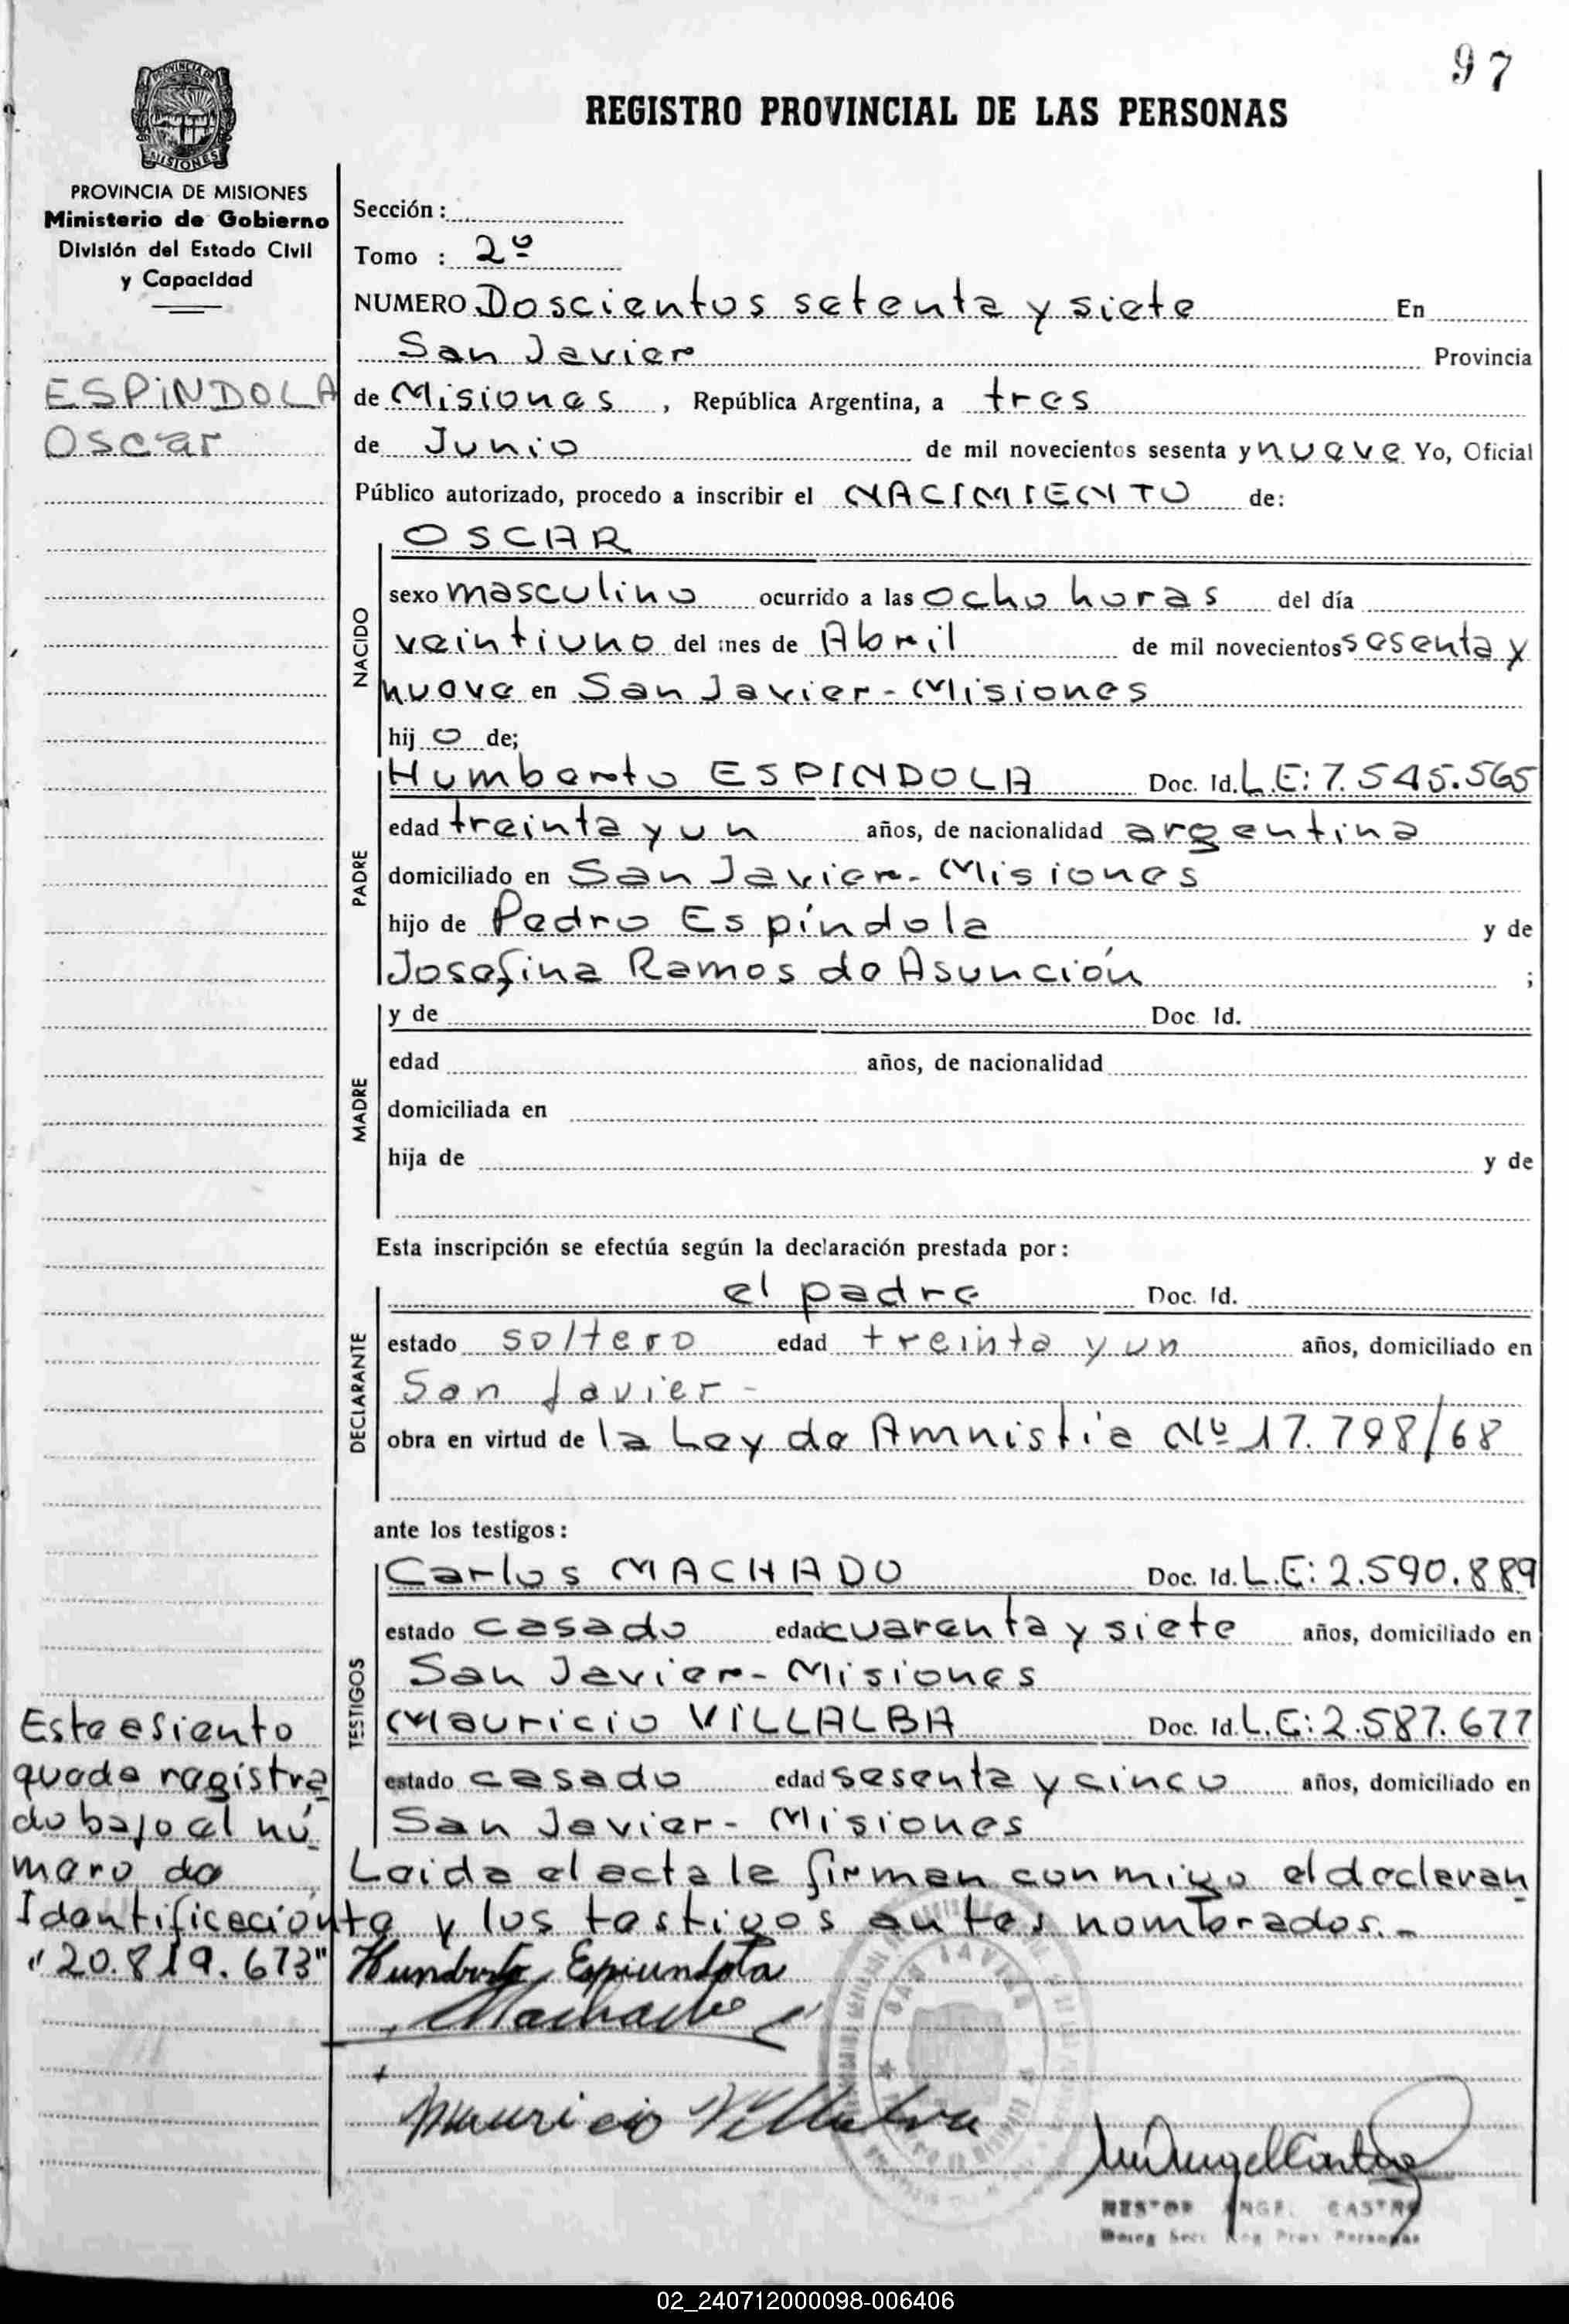 97
REGISTRO PROVINCIAL DE LAS PERSONAS
PROVINCIA DE MISIONES
PROVINCIA DE MISIONES
Ministerio de Gobierno
División del Estado Civil
y Capacidad
ESPINDOLA
Oscar
Sección :
Tomo : 2º
NUMERO Doscientos setenta y siete En
San Javier Provincia
de Misiones , República Argentina, a tres
de Junio de mil novecientos sesenta y nueve Yo, Oficial
Público autorizado, procedo a inscribir el NACIMIENTO de:
NACIDO
OSCAR
sexo masculino ocurrido a las ocho horas del día
veintiuno del mes de Abril de mil novecientos sesenta y
nueve en San Javier - Misiones
hij o de;
PADRE
Humberto ESPINDOLA Doc. Id. L.E: 7.545.565
edad treinta y un años, de nacionalidad argentina
domiciliado en San Javier - Misiones
hijo de Pedro Espíndola y de
Josefina Ramos de Asunción ;
MADRE
y de Doc. Id.
edad años, de nacionalidad
domiciliada en
hija de y de
Esta inscripción se efectúa según la declaración prestada por :
DECLARANTE
el padre Doc. Id.
estado soltero edad treinta y un años, domiciliado en
San Javier -
obra en virtud de la Ley de Amnistía Nº 17.798/68
ante los testigos :
TESTIGOS
Carlos MACHADO Doc. Id. L.E: 2.590.889
estado casado edad cuarenta y siete años, domiciliado en
San Javier - Misiones
Mauricio VILLALBA Doc. Id. L.E: 2.587.677
estado casado edad sesenta y cinco años, domiciliado en
San Javier - Misiones
Leida el acta la firman conmigo el declaran
te y los testigos antes nombrados.-
Este asiento
queda registra
do bajo el nú
mero de
Identificación
"20.819.673"
Humberto Espiundola
Machado
Mauricio Villalva
SAN JAVIER
NESTOR ANGEL CASTRO
02_240712000098-006406